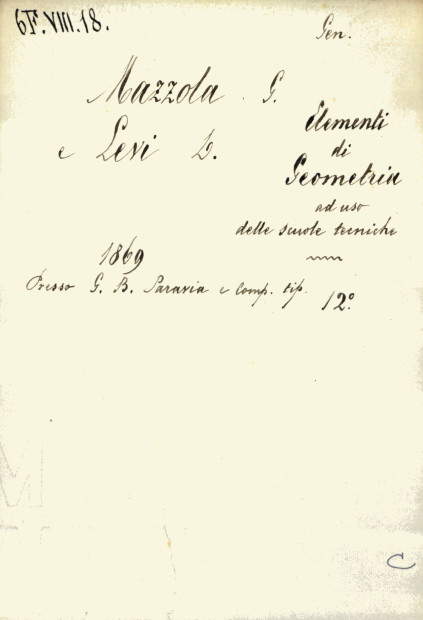 6F.VIII.18.
Gen.
Mazzola G.
e Levi D.
Elementi
di
Geometria
ad uso
delle scuole tecniche
1869
Presso G. B. Paravia e Comp. tip.
12º
C